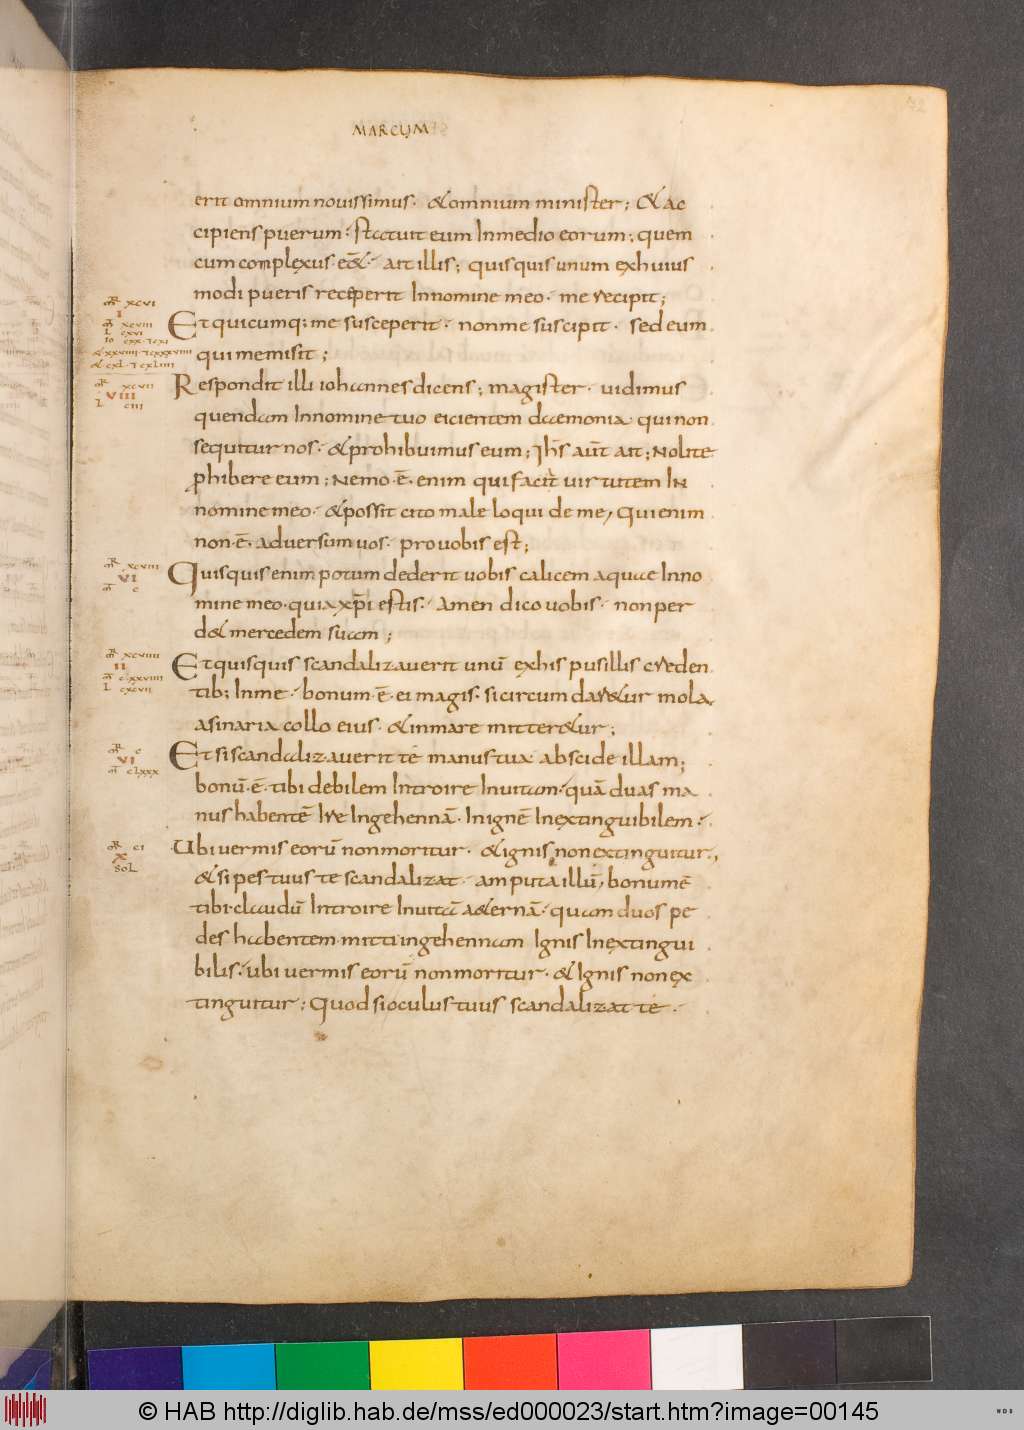 72
MARCUM
erit omnium nouissimus. & omnium minister; & ac
cipiens puerum. statuit eum In medio eorum; quem
cum complexus. eēt. ait illis; quisquis unum ex huius
modi pueris receperit In nomine meo. me recipit;
Et quicumq; me susceperit. non me suscipit. sed eum
qui me misit;
Respondit illi iohannes dicens; magister. uidimus
quendam In nomine tuo eicientem daemonia qui non
sequitur nos. & prohibuimus eum; Ihs aūt ait; Nolite
phibere eum; Nemo. ē. enim qui facit uirtutem IN
nomine meo. & possit cito male loqui de me, Qui enim
non. ē. aduersum uos. pro uobis est;
Quisquis enim potum dederit uobis calicem aquae In no
mine meo. quia xp̄i estis. Amen dico uobis. non per
d& mercedem suam;
Et quisquis scandalizauerit unū ex his pusillis creden
tib; In me. bonum. ē. ei magis. si circumdar&ur mola
asinaria collo eius. & in mare mitter&ur;
Et si scandalizauerit te manus tua abscide illam;
bonū. ē. tibi debilem Introire In uitam. quā duas ma
nus habentē Ire In gehennā. In ignē Inextinguibilem.
Ubi uermis eorū non moritur. & ignis non extinguitur.,
& si pes tuus te scandalizat. amputa illū, bonum ē
tibi. claudū Introire In uitā a&ernā. quam duos pe
des habentem. mitti in gehennam Ignis Inextingui
bilis. ubi uermis eorū non moritur. & Ignis non ex
tinguitur; Quod si oculus tuus scandalizat te.
xcvi
I
xcviii
L cxvi
Io cxx. 7 cxi
& xxviiii. 7 cxxxviiii
& cxl. 7 cxliiii
xcvii
VIII
L ciii
xcviii
VI
c
xcviiii
II
clxxviiii
L cxcvii
c
VI
clxxx
ci
X
Sol
© HAB http://diglib.hab.de/mss/ed000023/start.htm?image=00145
WDB